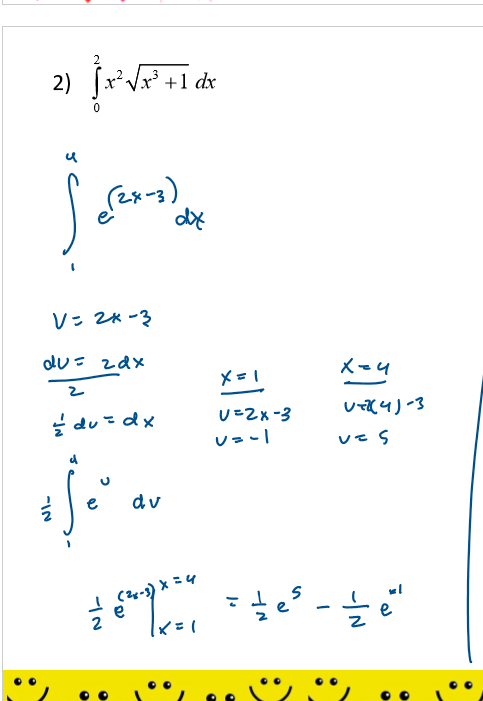 2) ∫₀² x²√(x³+1) dx
∫₁⁴ e^(2x-3) dx
U = 2x-3
du = 2dx
2
½ du = dx
x=1
U=2x-3
U=-1
x=4
U=2(4)-3
U=5
½ ∫₁⁴ e^u du
½ e^(2x-3) |_{x=1}^{x=4} = ½ e^5 - ½ e^-1